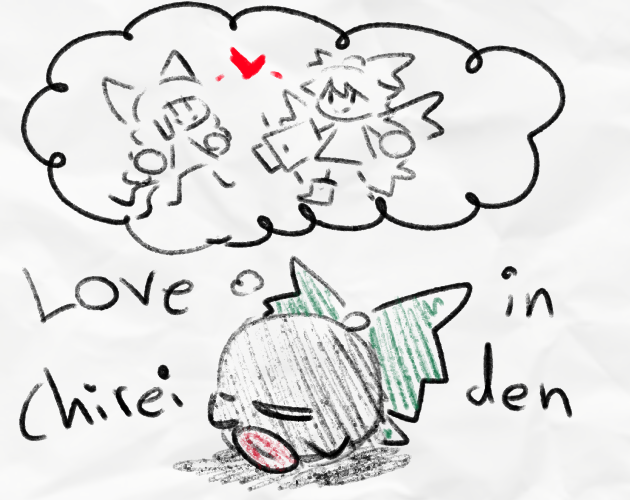 Love in
Chirei den